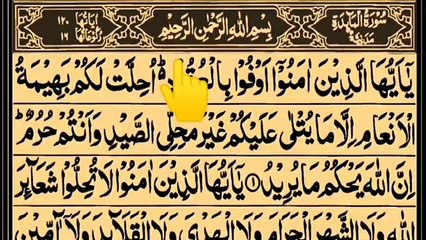 سُوْرَةُ الْمَآئِدَةِ مَدَنِيَّةٌ بِسْمِ اللهِ الرَّحْمٰنِ الرَّحِيْمِ اٰيَاتُهَا ١٢٠ رُكُوْعَاتُهَا ١٦
يٰۤاَيُّهَا الَّذِيْنَ اٰمَنُوْۤا اَوْفُوْا بِالْعُقُوْدِ ؕ اُحِلَّتْ لَكُمْ بَهِيْمَةُ
الْاَنْعَامِ اِلَّا مَا يُتْلٰى عَلَيْكُمْ غَيْرَ مُحِلِّى الصَّيْدِ وَاَنْتُمْ حُرُمٌ ؕ
اِنَّ اللهَ يَحْكُمُ مَا يُرِيْدُ ۝١ يٰۤاَيُّهَا الَّذِيْنَ اٰمَنُوْا لَا تُحِلُّوْا شَعَآئِرَ
اللهِ وَلَا الشَّهْرَ الْحَرَامَ وَلَا الْهَدْىَ وَلَا الْقَلَآئِدَ وَلَاۤ آٰمِّيْنَ